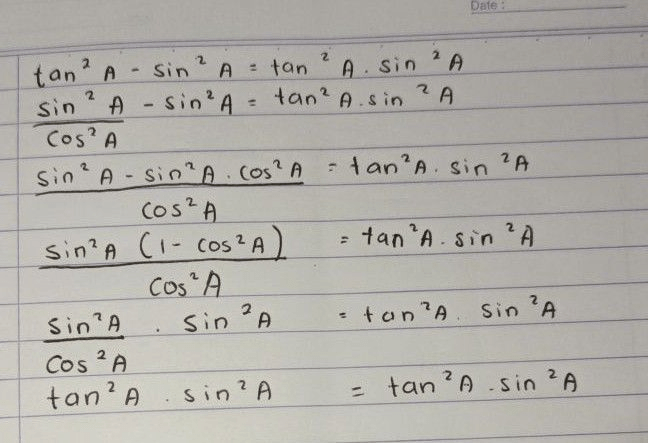 Date :
tan² A - sin² A = tan² A . sin² A
sin² A / cos² A - sin² A = tan² A . sin² A
sin² A - sin² A . cos² A / cos² A = tan² A . sin² A
sin² A (1 - cos² A) / cos² A = tan² A . sin² A
sin² A / cos² A . sin² A = tan² A . sin² A
tan² A . sin² A = tan² A . sin² A